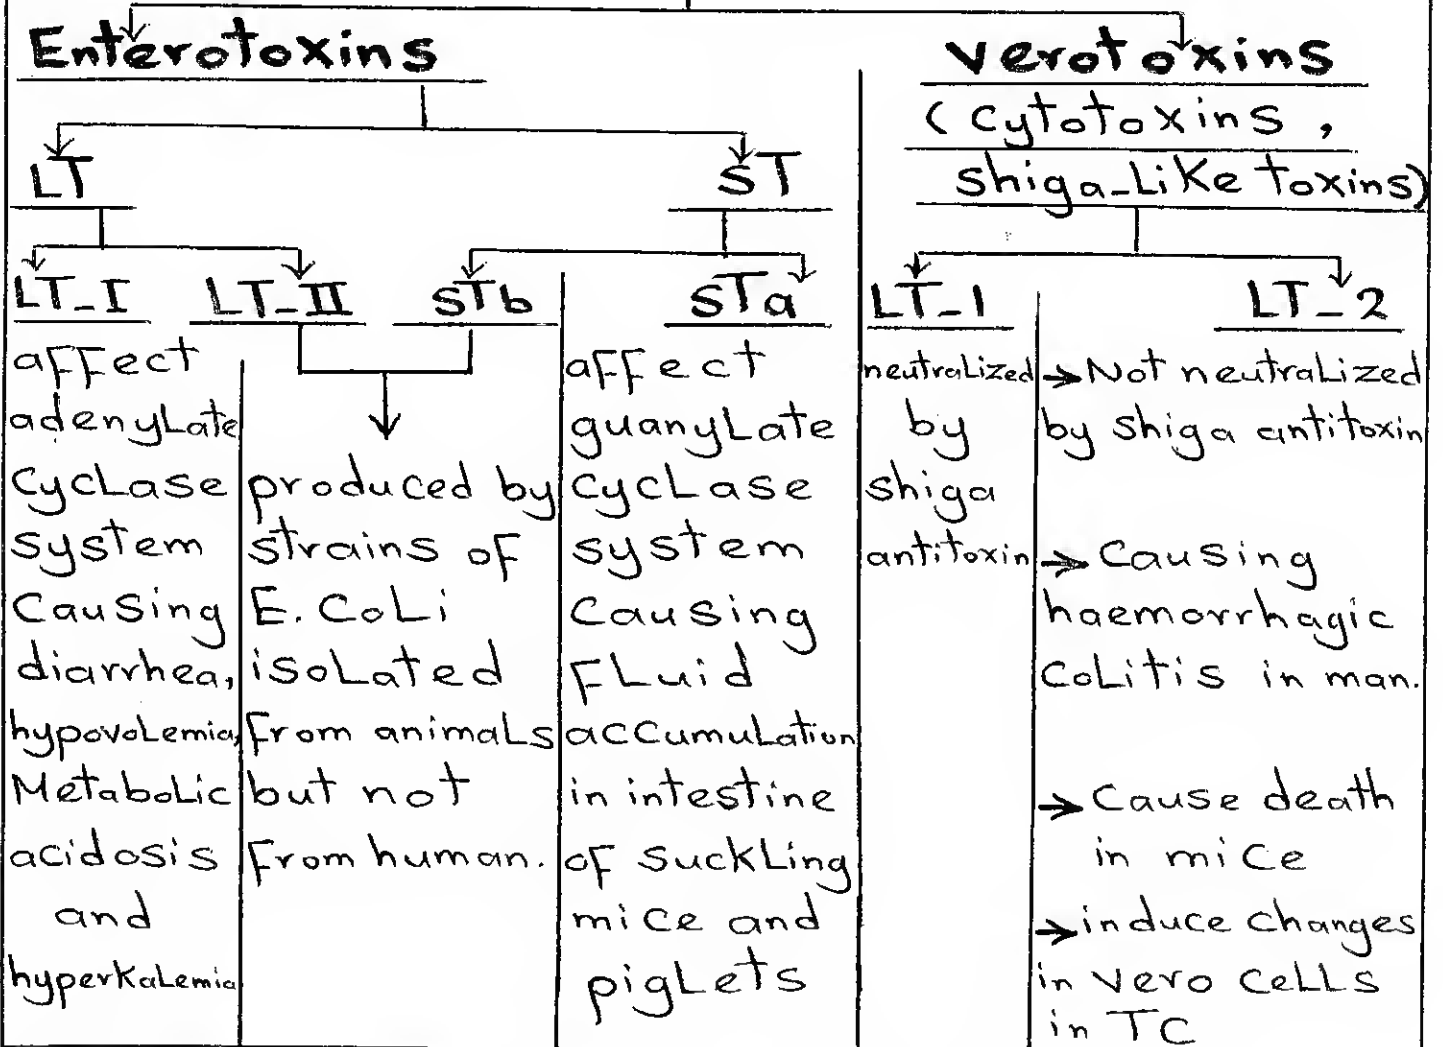 Enterotoxins
LT
ST
LT-I
LT-II
STb
STa
affect
adenylate
cyclase
system
causing
diarrhea,
hypovolemia,
Metabolic
acidosis
and
hyperkalemia
produced by
strains of
E. coli
isolated
from animals
but not
from human.
affect
guanylate
cyclase
system
causing
fluid
accumulation
in intestine
of suckling
mice and
piglets
verotoxins
(cytotoxins,
shiga-like toxins)
LT-1
LT-2
neutralized
by
shiga
antitoxin
→ Not neutralized
by shiga antitoxin
→ causing
haemorrhagic
colitis in man.
→ cause death
in mice
→ induce changes
in vero cells
in TC